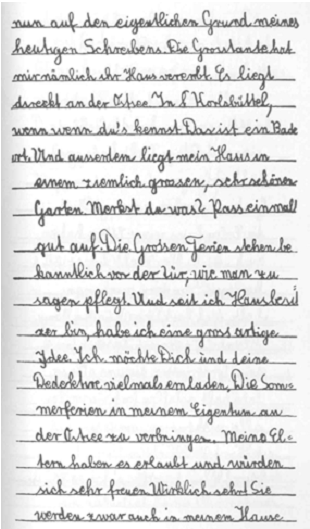 nun auf den eigentlichen Grund meines
heutigen Schreibens. Die Grostante hat
mir nämlich ihr Haus vererbt. Es liegt
direckt an der Ostsee. In
wenn wenn du's kennst. Das ist ein Bade
ort. Und auserdem liegt mein Haus in
einem ziemlich grosen, sehr schönen
Garten. Merkst du was? Pass einmall
gut auf. Die Grosen Ferien stehen be
kanntlich vor der Tür, wie man zu
sagen pflegt. Und seit ich Hausbesi
zer bin, habe ich eine gross artige
Ydee. Ich möchte Dich und deine
vielmals einladen, Die Som=
merferien in meinem Eigentum an
der Ostsee zu verbringen. Meine El=
tern haben es erlaubt und würden
sich sehr freuen. Wirklich sehr! Sie
werden zwar auch in meinem Hause